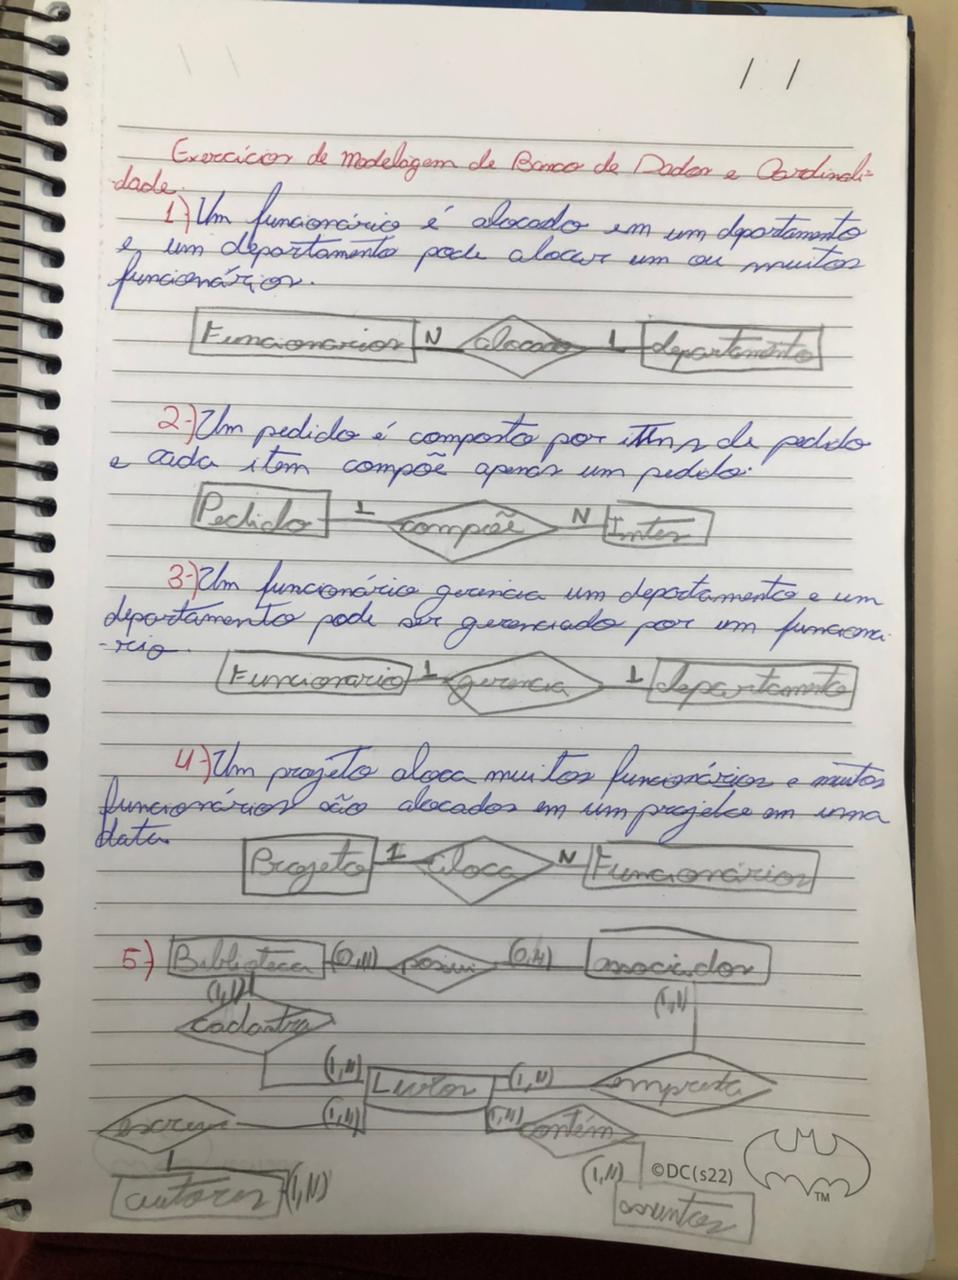 / /
Exercícios de Modelagem de Banco de Dados e Cardinali-
dade.
1-) Um funcionário é alocado em um dportamento
e um departamento pode alocar um ou muitos
funcionários.
Funcionarios N alocado 1 departamento
2-) Um pedido é composto por itens de pedido
e cada item compõe apenas um pedido.
Pedido 1 compõê N
3-) Um funcionário gerencia um departamento e um
departamento pode ser gerenciado por um funcioná-
-rio.
Funcionario 1 gerencia 1 departamento
4-) Um projeto aloca muitos funcionários e muitos
funcionários são alocados em um projeto em uma
data.
Projeto 1 aloca N Funcionários
5-) Biblioteca (0,N) possui (0,N) associados
(1,N) (1,N)
cadastra
(1,N) Livros (1,N) empresta
escreve (1,N) (1,N) contém
autores (1,N) (1,N) ©DC(s22) TM
assuntos